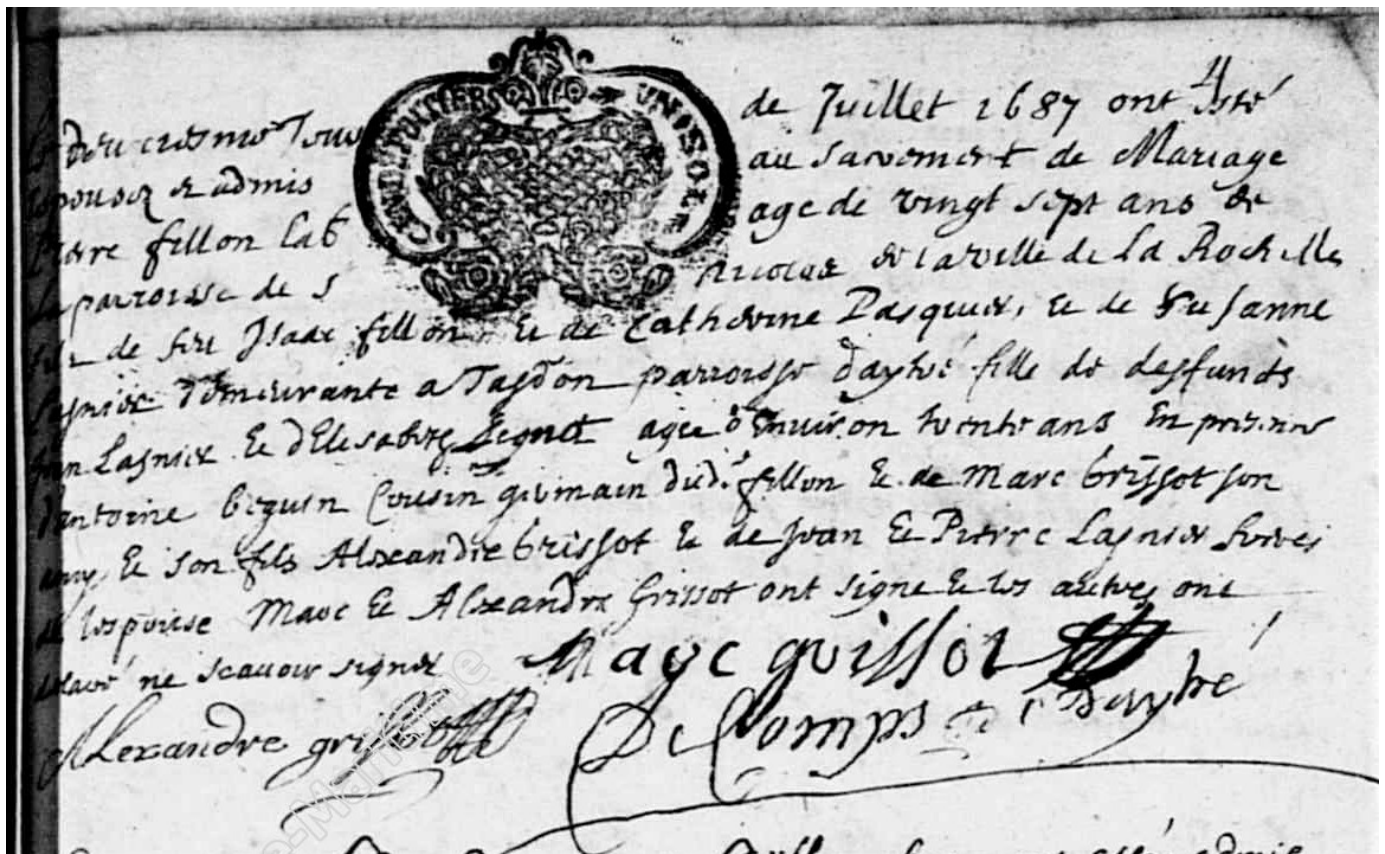 de Juillet 1687 ont esté
espousez et admis au sacrement de Mariage
Pierre fillon lab age de vingt sept ans de
la parroisse de S Nicolas de la ville de La Rochelle
fils de feu Isaac fillon & de Catherine Pasquier, & de Susanne
Lagnier demeurante a Tasdon parroisse daytré fille de deffunds
Jean Lagnier & dElisabeth agee denviron trente ans En presence
dantoine beguin Cousin germain dud. fillon & de Marc Grissot son
amy & son fils Alexandre Grissot & de Jean & Pierre Lagnier freres
de lespouse Marc & Alexandre Grissot ont signe & les autres ont
declaré ne scavoir signer
Marc grissot
Alexandre grissot
De Comps daytré
GEN DE POITIERS UN SOL